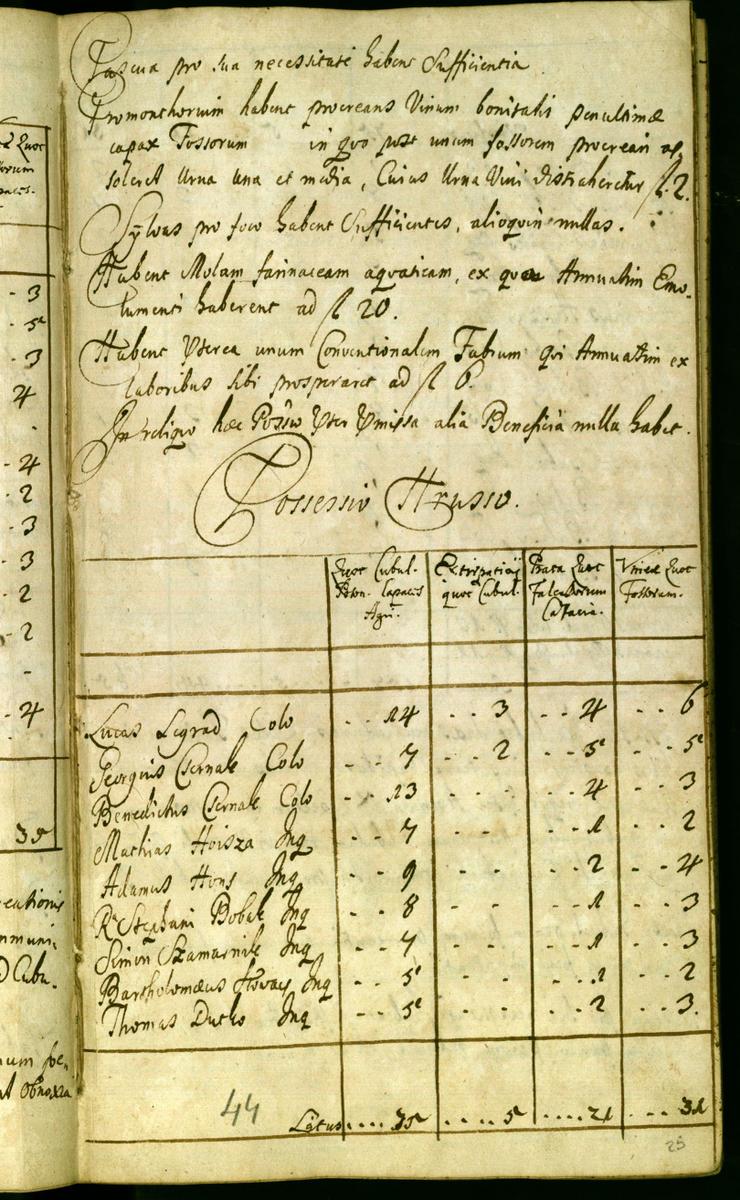 3
5
3
4
4
2
3
3
2
2
4
35
Pascua pro sua necessitate habent Sufficientia
Promonthorium habent procreans Vinum bonitatis penultimæ
capax Fossorum in quo post unum fossorem procreari
soleret Urna una et media, Cuius Urna Vini distraheretur fl. 2.
Sylvas pro foco habent Sufficientes, alioquin nullas.
Habent Molam farinaceam aquaticam, ex qua Annuatim Emo-
lumenti haberent ad fl 20.
Habent unum Conventionalem Fabrum qui Annuatim ex
laboribus sibi prosperaret ad fl 6.
In reliquo hæc alia Beneficia nulla habet.
Possessio Hrusso.
Quot Cubul. Poson. Capaces Agri.
Extirpationis quot Cubul.
Prata Quot Falcatorum Capacia.
Vineæ Quot Fossorum.
Lucas Legrad Colo - - 14 - - 3 - - 4 - - 6
Georgius Csernak Colo - - 7 - - 2 - - 5 - - 5
Benedictus Csernak Colo - - 13 - - - - - 4 - - 3
Mathias Hoisza Inq - - 7 - - - - 1 - - 2
Adamus Hons Inq - - 9 - - - - 2 - - 4
Rx Stephani Bobak Inq - - 8 - - - - 1 - - 3
Simon Szamarnik Inq - - 7 - - - - 1 - - 3
Bartholomæus Inq - - 5 - - - - 1 - - 2
Thomas Dutko Inq - - 5 - - - - 2 - - 3.
44
Latus.... 35 .... 5 .... 21 .... 31
25